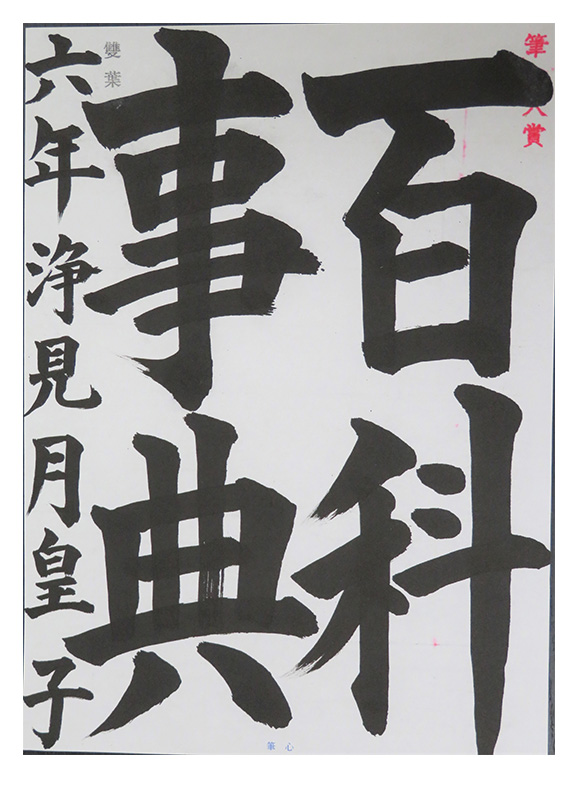 百科
事典
六年 浄見月皇子
雙葉
筆心